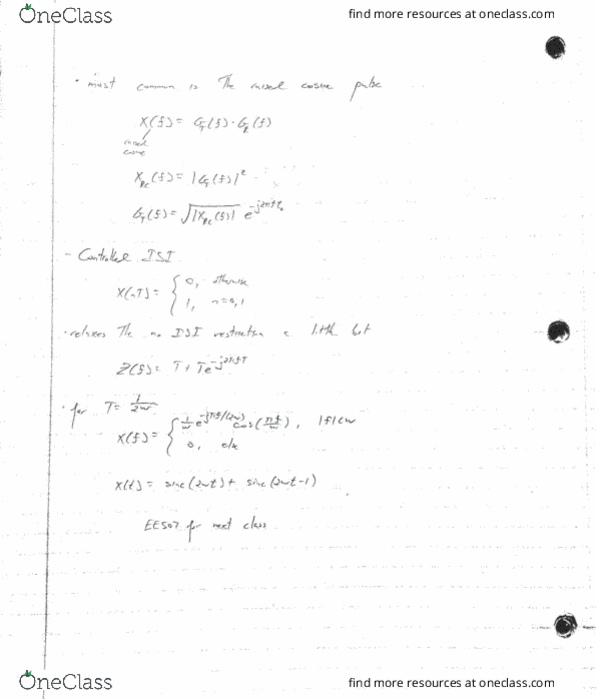 OneClass
find more resources at oneclass.com
· most common is The raised cosine pulse
X(f) = G_T(f)·G_R(f)
raised
cosine
X_RC(f) = |G_T(f)|²
G_T(f) = √|X_RC(f)| e^-j2πft₀
- Controlled ISI
X(nT) = { 0, otherwise
1, n=0,1
· relaxes The no ISI restriction a little bit
Z(f) = T + Te^-j2πfT
· for T = 1/2w
X(f) = { 1/w e^-jπf/(2w) cos(πf/w), |f|<w
0, else
X(t) = sinc(2wt) + sinc(2wt-1)
EE507 for next class
OneClass
find more resources at oneclass.com